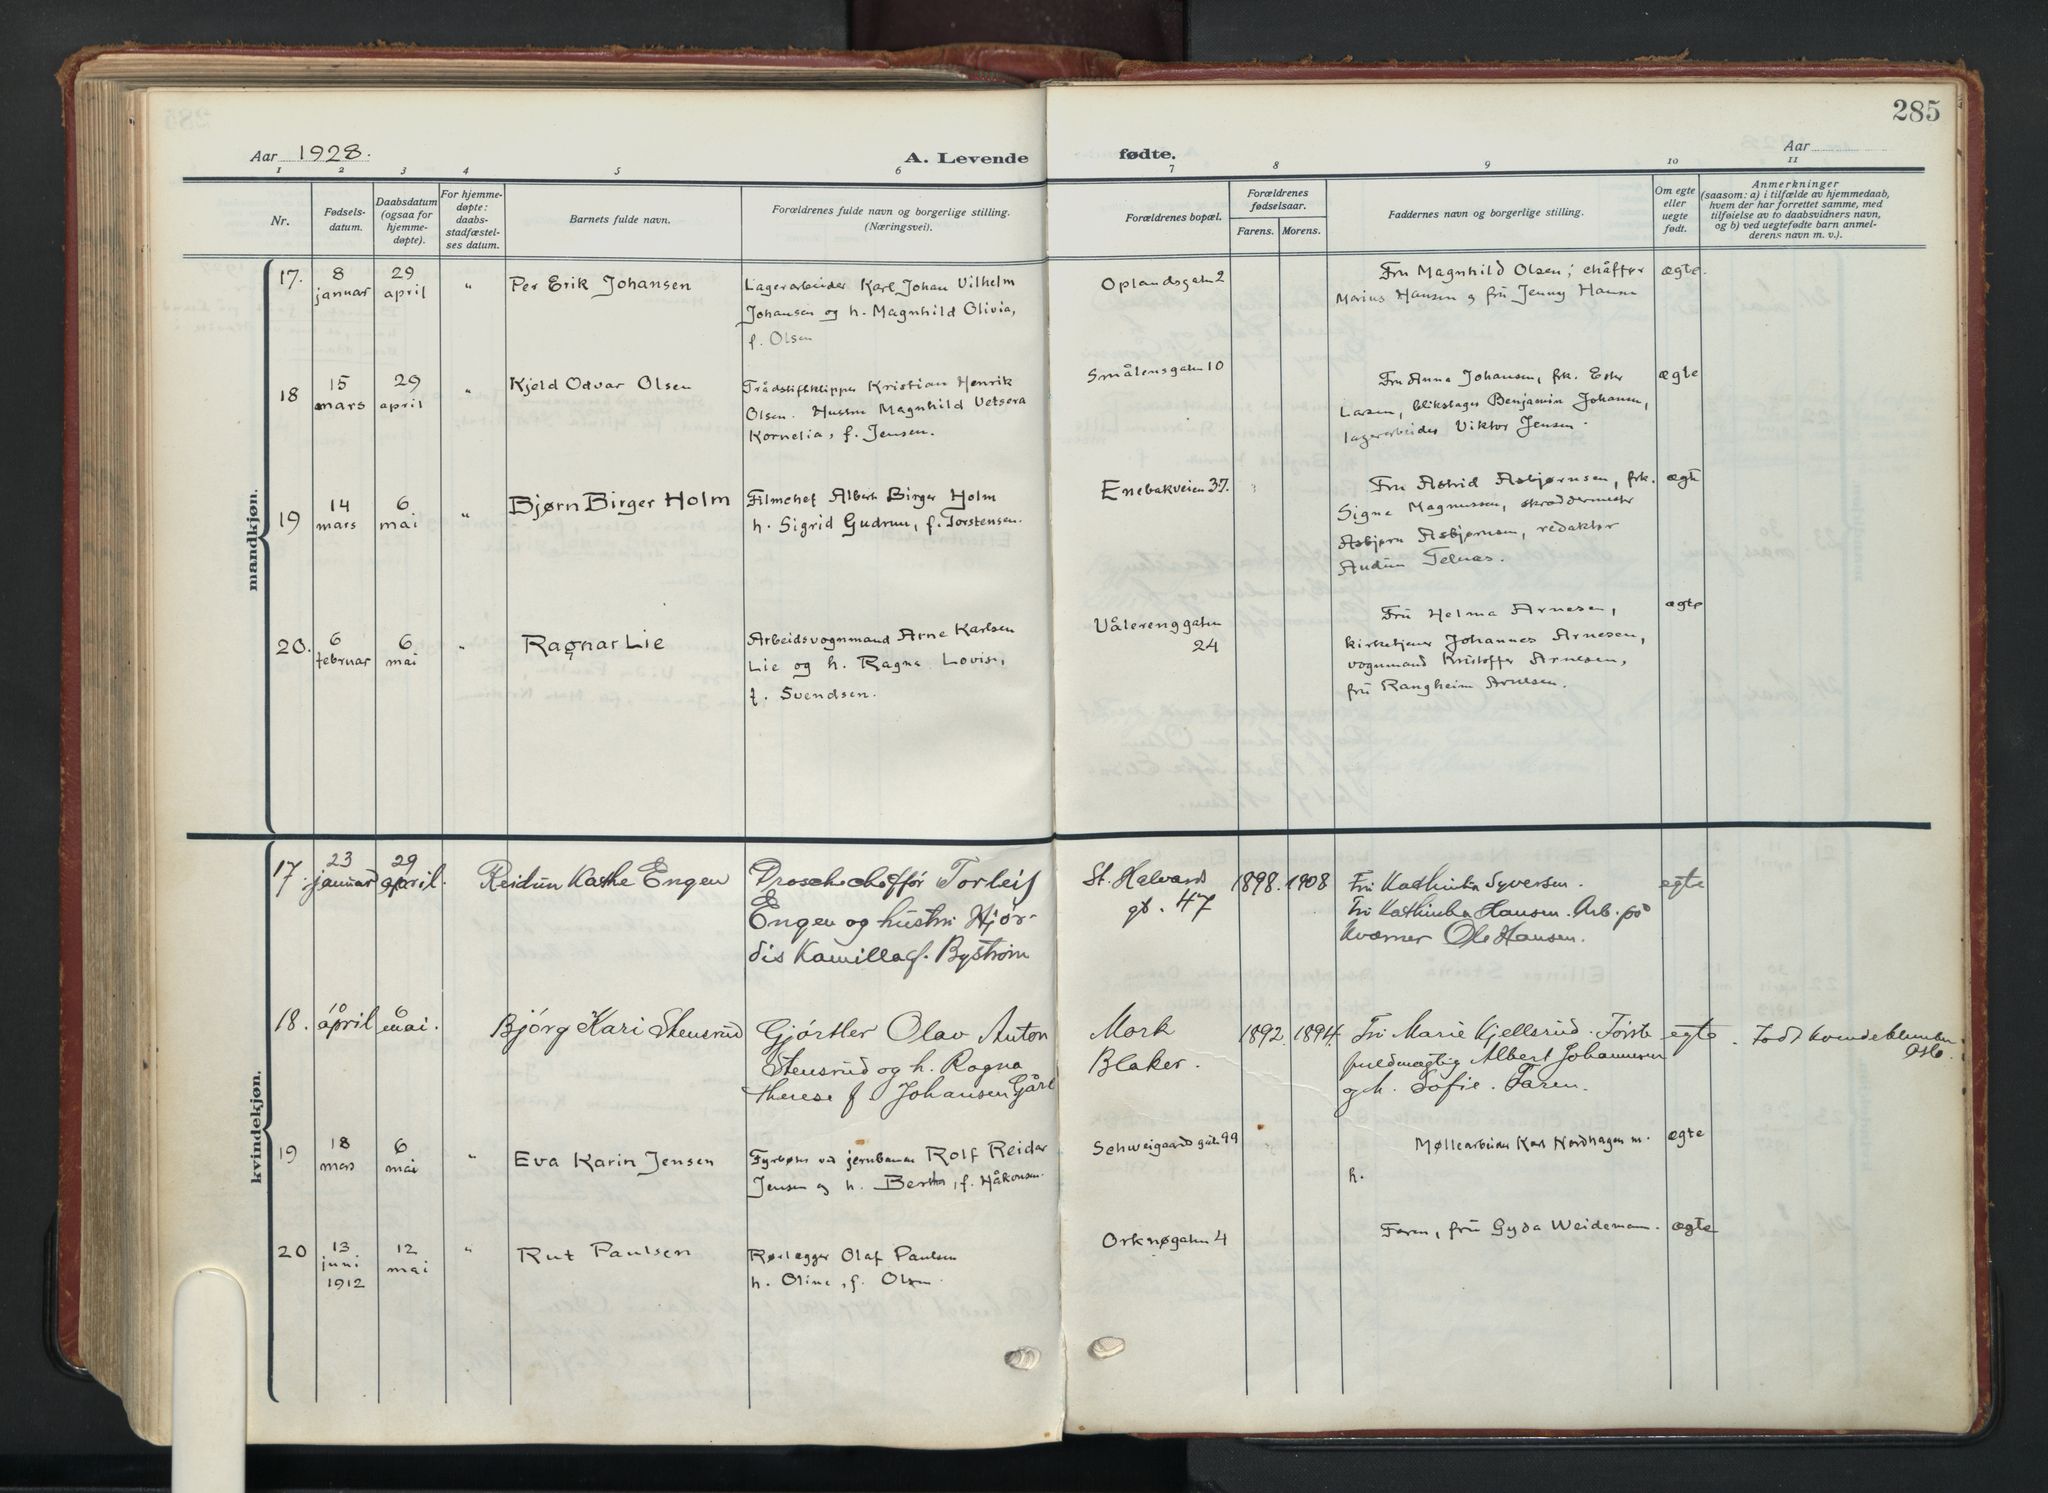 285
Aar 1928.
A. Levende
fødte.
Aar
1 2 3 4 5 6 7 8 9 10 11
Nr.
Fødsels-
datum.
Daabsdatum
(ogsaa for
hjemme-
døpte).
For hjemme-
døpte:
daabs-
stadfæstel-
ses datum.
Barnets fulde navn.
Forældrenes fulde navn og borgerlige stilling.
(Næringsvei).
Forældrenes bopæl.
Forældrenes
fødselsaar.
Farens. Morens.
Faddernes navn og borgerlige stilling.
Om egte
eller
uegte
født.
Anmerkninger
(saasom: a) i tilfælde av hjemmedaab,
hvem der har forrettet samme, med
tilføielse av to daabsvidners navn,
og b) ved uegtefødte barn anmel-
derens navn m. v.).
mandkjøn.
17. 8 januar 29 april " Per Erik Johansen
Lagerarbeider Karl Johan Vilhelm
Johansen og h. Magnhild Olivia,
f. Olsen
Oplandsgaten 2
Fru Magnhild Olsen; chåffør
Marius Hansen og fru Jenny Hansen
ægte.
18 15 mars 29 april " Kjeld Odvar Olsen
Trådstiftklipper Kristian Henrik
Olsen. Hustru Magnhild Vetsera
Kornelia, f. Jensen.
Smålensgaten 10
Fru Anna Johansen, frk. Ester
Larsen, blikslager Benjamin Johansen,
lagerarbeider Viktor Jensen.
ægte
19 14 mars 6 mai " Bjørn Birger Holm
Filmchef Albert Birger Holm
h. Sigrid Gudrun, f. Torstensen.
Enebakveien 37.
Fru Astrid Asbjørnsen, frk.
Signe Magnussen, skræddermester
Asbjørn Asbjørnsen, redaktør
Audun Telnæs.
ægte
20. 6 februar 6 mai " Ragnar Lie
Arbeidsvognmand Arne Karlsen
Lie og h. Ragna Lovise,
f. Svendsen.
Vålerenggaten
24
Fru Helma Arnesen,
kirketjener Johannes Arnesen,
vognmand Kristoffer Arnesen,
fru Rangheim Arnesen.
ægte
kvindekjøn.
17. 23 januar 29 april. Reidun Kathe Engen
Droschechoffør Torleif
Engen og hustru Hjør-
dis Kamilla f. Bystrøm
St. Halvards
gt. 47
1898. 1908
Fru Kathinka Syversen.
Fru Kathinka Hansen. Arb. på
Kværner Ole Hansen.
egte
18. 10 april 6 mai. Bjørg Kari Stensrud
Gjørtler Olav Anton
Stensrud og h. Ragna
Therese f. Johansen Gård
Mork
Blaker.
1892. 1894.
Fru Marie Kjellsrud. Første
fuldmægtig Albert Johannesen
og h. Sofie. Faren.
egte
Født Kvindeklinikken
Oslo.
19 18 mars 6 mai " Eva Karin Jensen
Fyrbøter ved jernbanen Rolf Reidar
Jensen og h. Bertha, f. Håkonsen.
Schweigaards gate 99
Møllearbeider Karl Nordhagen m.
h.
ægte
20 13 juni 1912 12 mai " Rut Paulsen
Rørlægger Olaf Paulsen
h. Oline, f. Olsen.
Orknøgaten 4
Faren, fru Gyda Weidemann.
ægte